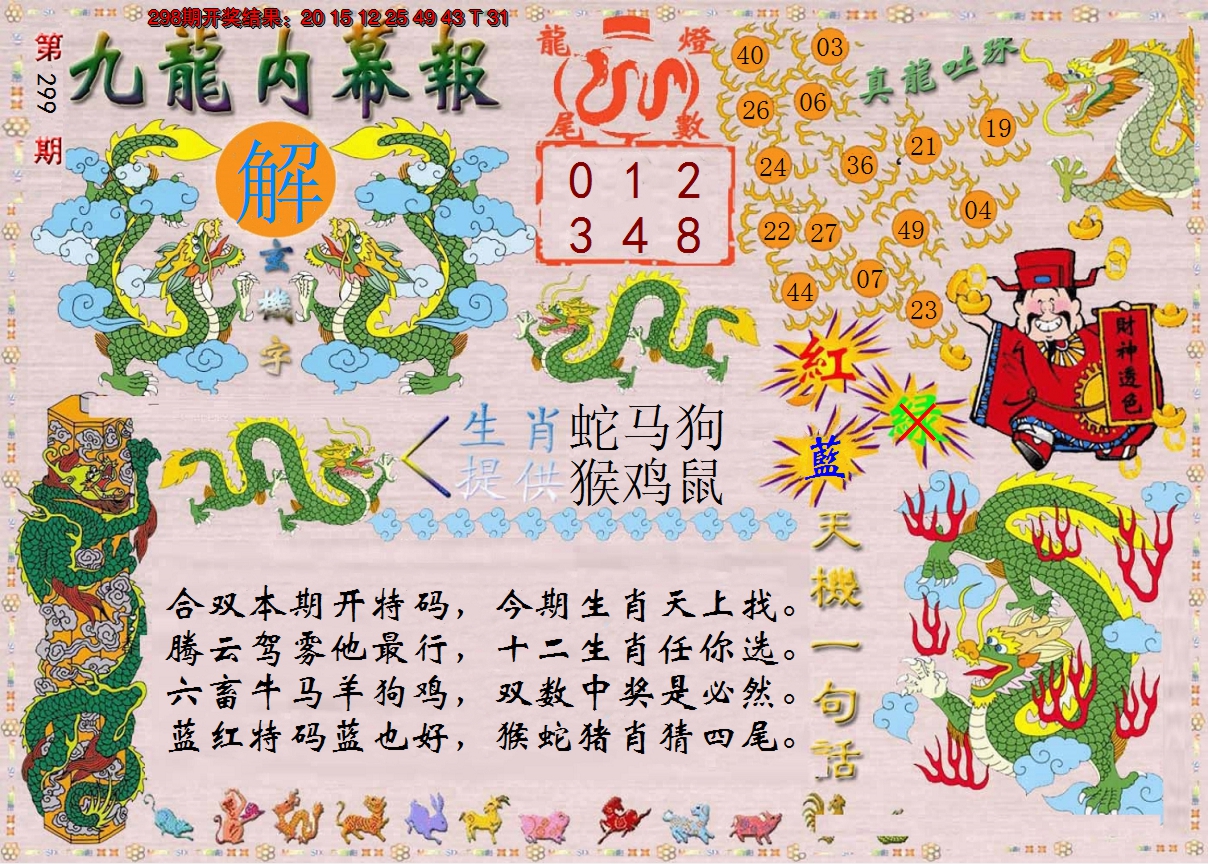 298期开奖结果：20 15 12 25 49 43 T 31
第299期
九龍内幕報
解
玄機字
龍燈尾數
0 1 2
3 4 8
真龍吐珠
40
03
26
06
24
36
21
19
22
27
49
04
44
07
23
紅
绿
藍
財神透色
生肖提供
蛇马狗
猴鸡鼠
天機一句話
合双本期开特码，今期生肖天上找。
腾云驾雾他最行，十二生肖任你选。
六畜牛马羊狗鸡，双数中奖是必然。
蓝红特码蓝也好，猴蛇猪肖猜四尾。